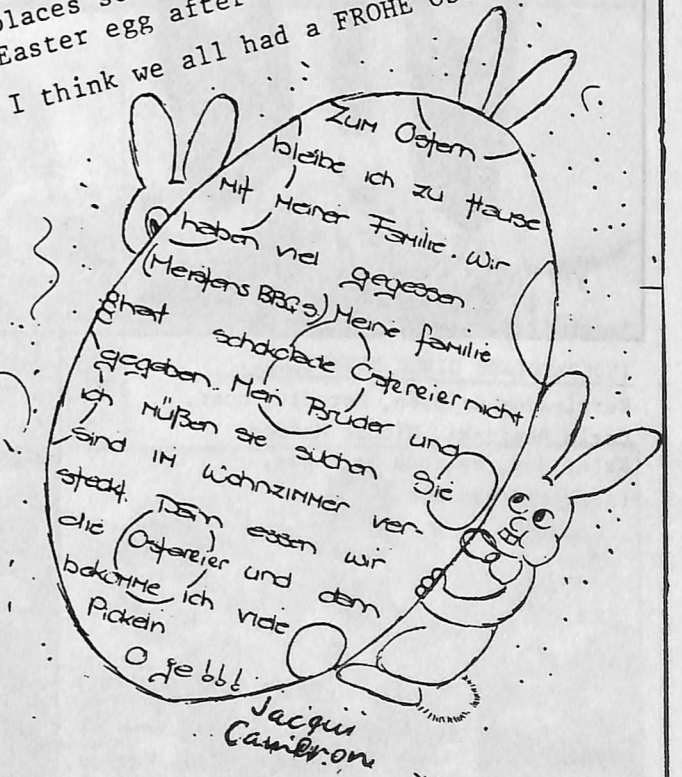 places
Easter egg after
I think we all had a FROHE
Zum Ostern
bleibe ich zu Hause
Mit Meiner Familie. Wir
haben viel gegessen
(Meistens BBQs) Meine familie
hat schokolade Ostereier nicht
gegeben. Mein Brüder und
ich Müßen sie suchen Sie
sind im Wohnzimmer ver
steckt. Dann essen wir
die Ostereier und dann
bekomme ich viele
Pickeln
O je!!!
Jacqui
Cameron